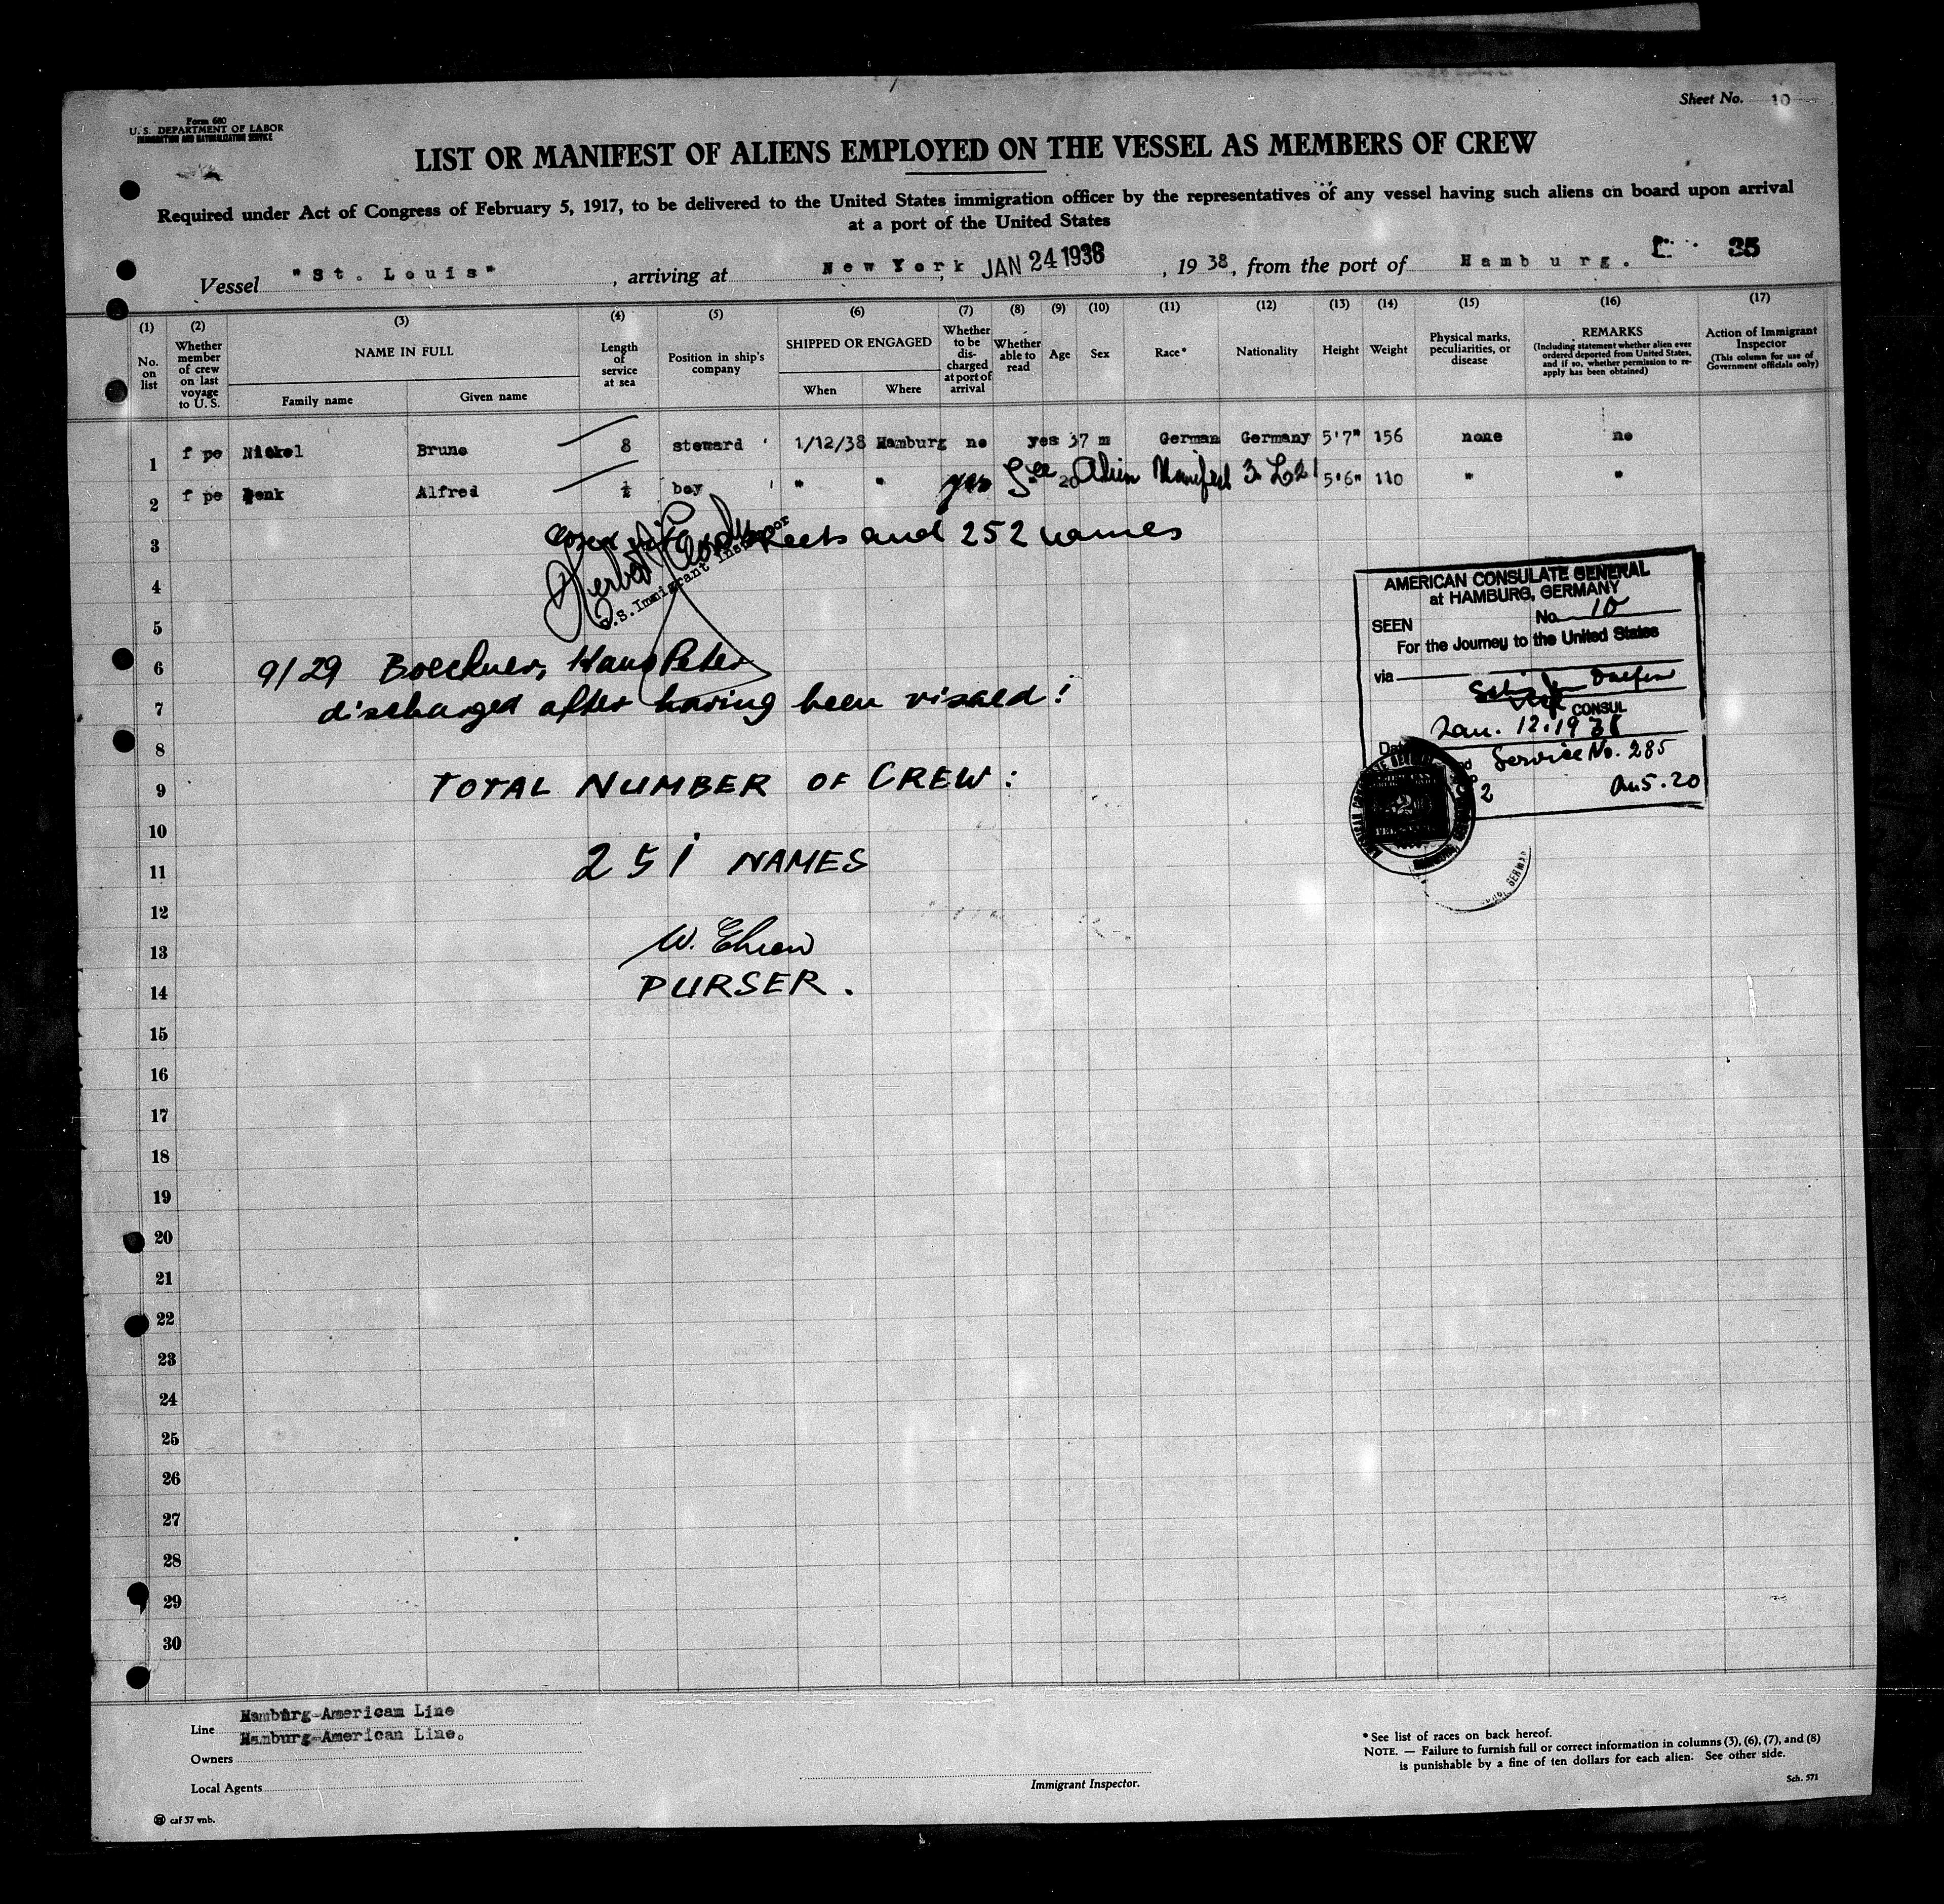 Sheet No. 10
Form 680
U. S. DEPARTMENT OF LABOR
IMMIGRATION AND NATURALIZATION SERVICE
LIST OR MANIFEST OF ALIENS EMPLOYED ON THE VESSEL AS MEMBERS OF CREW
Required under Act of Congress of February 5, 1917, to be delivered to the United States immigration officer by the representatives of any vessel having such aliens on board upon arrival
at a port of the United States
Vessel "St. Louis", arriving at New York, JAN 24 1938, 1938, from the port of Hamburg. 35
(1) (2) (3) (4) (5) (6) (7) (8) (9) (10) (11) (12) (13) (14) (15) (16) (17)
No. on list
Whether member of crew on last voyage to U. S.
NAME IN FULL
Family name
Given name
Length of service at sea
Position in ship's company
SHIPPED OR ENGAGED
When
Where
Whether to be discharged at port of arrival
Whether able to read
Age
Sex
Race*
Nationality
Height
Weight
Physical marks, peculiarities, or disease
REMARKS
(Including statement whether alien ever ordered deported from United States, and if so, whether permission to re-apply has been obtained)
Action of Immigrant Inspector
(This column for use of Government officials only)
1 f pe Nickel Bruno 8 steward 1/12/38 Hamburg no yes 37 m German Germany 5'7" 156 none no
2 f pe Denk Alfred ½ boy " " yes See 20 Alien Manifest 3. L21 5'6" 110 " "
3 sheets and 252 names
U.S. Immigrant Inspector
4
5
6 9/29 Boeckner, Hans Peter
7 discharged after having been visaed!
8
9 TOTAL NUMBER OF CREW:
10
11 251 NAMES
12
13 W. Ehren
14 PURSER.
15
16
17
18
19
20
21
22
23
24
25
26
27
28
29
30
AMERICAN CONSULATE GENERAL
at HAMBURG, GERMANY
SEEN No. 10
For the Journey to the United States
via
CONSUL
Jan. 12. 1938
Service No. 285
2
Line Hamburg-American Line
Owners Hamburg-American Line.
Local Agents
Immigrant Inspector.
* See list of races on back hereof.
NOTE. — Failure to furnish full or correct information in columns (3), (6), (7), and (8)
is punishable by a fine of ten dollars for each alien. See other side.
Sch. 571
caf 37 vnb.